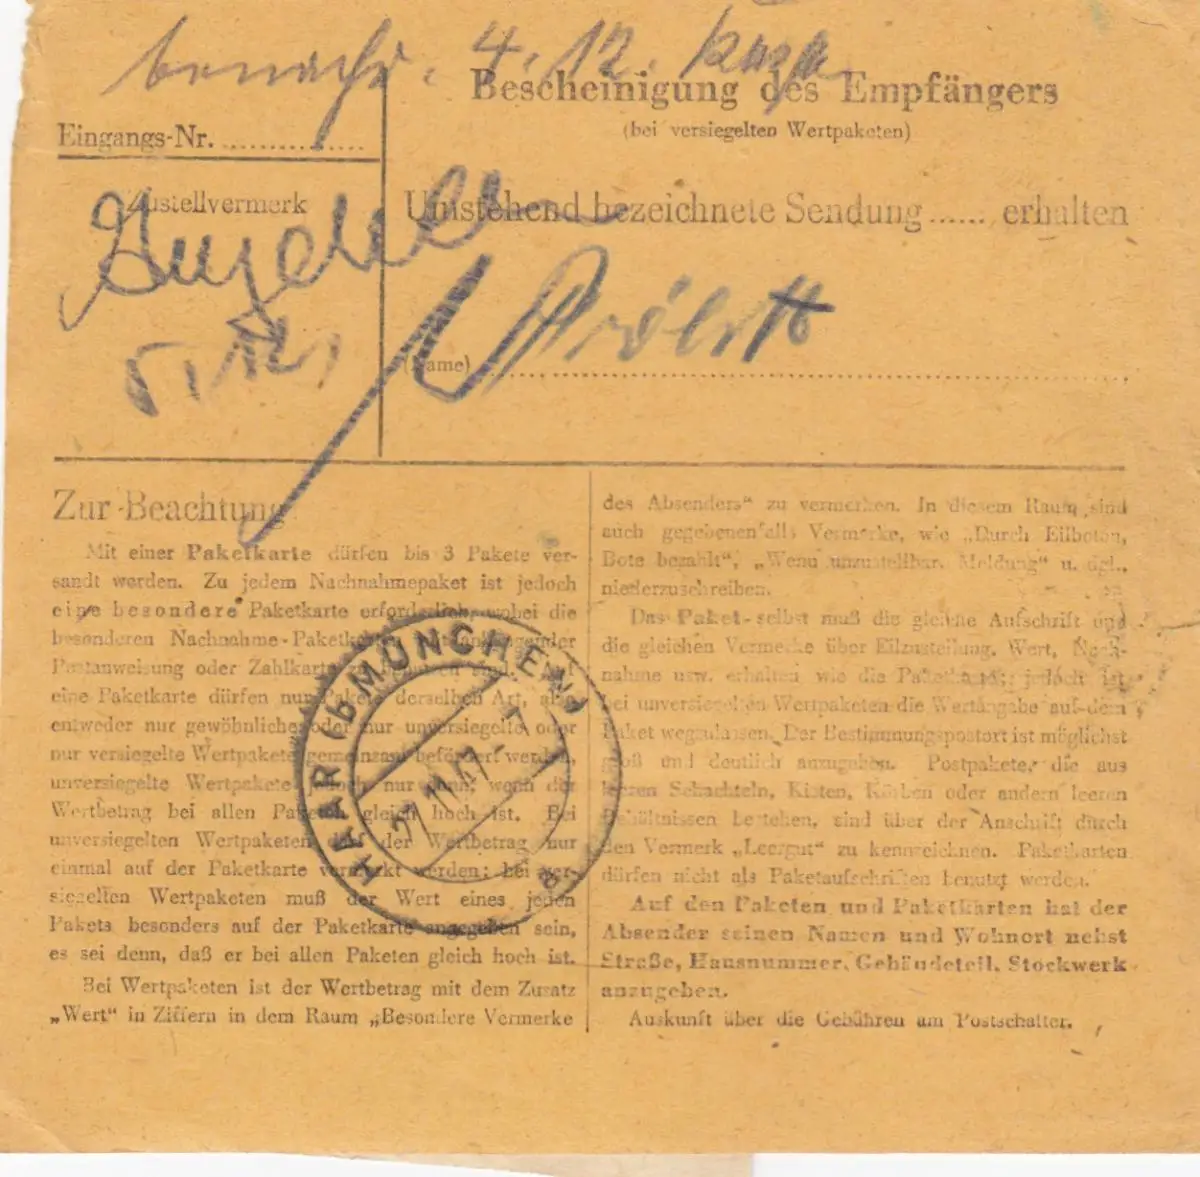 benachr. 4. 12.
Bescheinigung des Empfängers
(bei versiegelten Wertpaketen)
Eingangs-Nr. ....................
Zustellvermerk
Umstehend bezeichnete Sendung ...... erhalten
(Name)
Zur Beachtung
Mit einer Paketkarte dürfen bis 3 Pakete ver-
sandt werden. Zu jedem Nachnahmepaket ist jedoch
eine besondere Paketkarte erforderlich, wobei die
besonderen Nachnahme-Paketkarten mit anhängender
Postanweisung oder Zahlkarte zu benutzen sind. Auf
eine Paketkarte dürfen nur Pakete derselben Art, also
entweder nur gewöhnliche oder nur unversiegelte oder
nur versiegelte Wertpakete gemeinsam befördert werden,
unversiegelte Wertpakete jedoch nur dann, wenn der
Wertbetrag bei allen Paketen gleich hoch ist. Bei
unversiegelten Wertpaketen der Wertbetrag nur
einmal auf der Paketkarte vermerkt werden; bei ver-
siegelten Wertpaketen muß der Wert eines jeden
Pakets besonders auf der Paketkarte angegeben sein,
es sei denn, daß er bei allen Paketen gleich hoch ist.
Bei Wertpaketen ist der Wertbetrag mit dem Zusatz
„Wert“ in Ziffern in dem Raum „Besondere Vermerke
des Absenders“ zu vermerken. In diesem Raum sind
auch gegebenenfalls Vermerke, wie „Durch Eilboten,
Bote bezahlt“, „Wenn unzustellbar, Meldung“ u. dgl.,
niederzuschreiben.
Das Paket selbst muß die gleiche Aufschrift und
die gleichen Vermerke über Eilzustellung, Wert, Nach-
nahme usw. erhalten wie die Paketkarte; jedoch ist
bei unversiegelten Wertpaketen die Wertangabe auf dem
Paket wegzulassen. Der Bestimmungspostort ist möglichst
groß und deutlich anzugeben. Postpakete, die aus
leeren Schachteln, Kisten, Körben oder andern leeren
Behältnissen bestehen, sind über der Anschrift durch
den Vermerk „Leergut“ zu kennzeichnen. Paketkarten
dürfen nicht als Paketaufschriften benutzt werden.
Auf den Paketen und Paketkarten hat der
Absender seinen Namen und Wohnort nebst
Straße, Hausnummer, Gebäudeteil, Stockwerk
anzugeben.
Auskunft über die Gebühren am Postschalter.
HAAR b MÜNCHEN
27.11.47
a